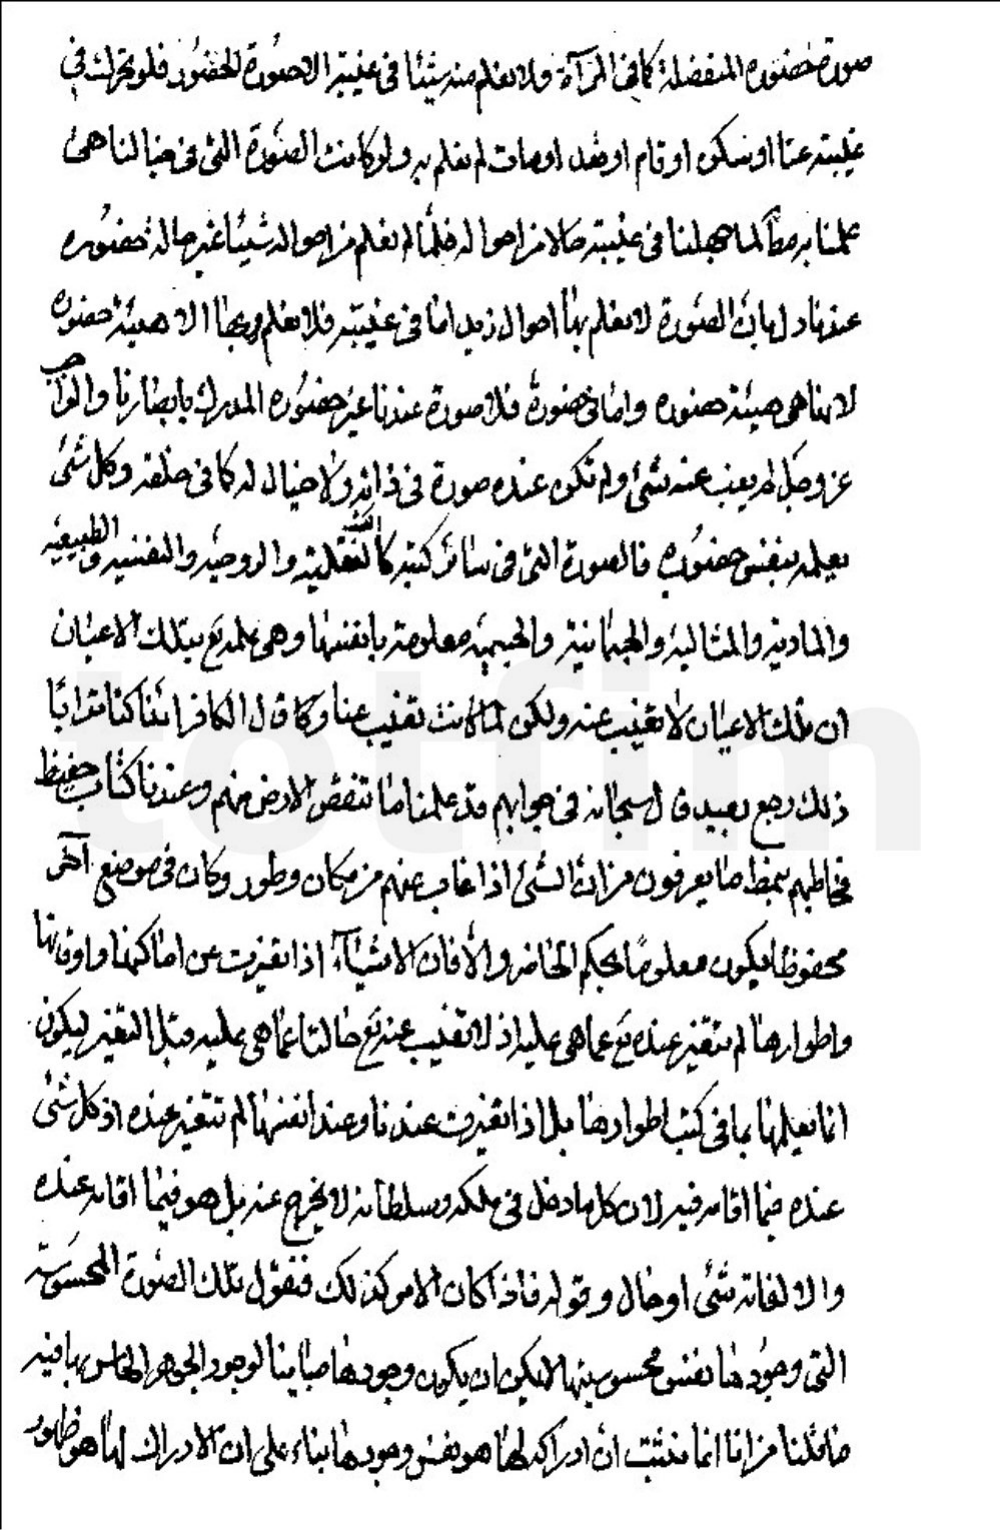 صورة حضوره المنفصلة كما فى المرآة ولا نعلم منه شيئا فى غيبته الا صورة الحضور فلو تحرك فى
غيبته عنا او سكن او قام او قعد او مات لم نعلم به ولو كانت الصورة التى فى خيالنا هى
علمنا به مطا لما جهلنا فى غيبته حالا من احواله فلما لم نعلم من احواله شيئا غير حالة حضوره
عندنا دل بان الصورة لا نعلم بها احوال زيد اما فى غيبته فلا نعلم بها الا هيئة حضوره
لانها هى هيئة حضوره واما فى حضوره فلا صورة عندنا غير حضوره المدرك بابصارنا والواجب
عز وجل لم يغب عنه شئ ولم تكن عنده صورة فى ذاته ولا خيال له كما فى خلقه وكل شئ
يعلمه بنفس حضوره فالصورة التى فى سائر كتبه كالعقلية والروحية والنفسية والطبيعية
والمادية والمثالية والجسمانية والجسمية معلومة بانفسها وهى علمه تع بتلك الاعيان
ان تلك الاعيان لا تغيب عنه ولكن لما كانت تغيب عنا وكما قال الكافر ائذا كنا ترابا
ذلك رجع بعيد قال سبحانه فى جوابهم قد علمنا ما تنقص الارض منهم وعندنا كتاب حفيظ
فخاطبهم بمط ما يعرفون من ان الشئ اذا غاب عنهم من مكان وطور وكان فى موضع آخر
محفوظا ليكون معلوما بحكم الحاضر والا فان الاشياء اذا تغيرت عن اماكنها واوقاتها
واطوارها لم تتغير عنده تع عما هى عليه اذ لا تغيب عنده تع حالتها عما هى عليه قبل التغير ليكون
انما يعلمها بما فى كتب اطوارها بل اذا تغيرت عندنا وعند انفسها لم تتغير عنده اذ كل شئ
عنده فيما اقامه فيه لان كل ما دخل فى ملكه وسلطانه لا يخرج عنه بل هو فيما اقامه عنده
والا لفاته شئ او حال وقوله فاذا كان الامر كذلك فنقول تلك الصورة المحسوسة
التى وجودها نفس محسوسيتها لا يمكن ان يكون وجودها مباينا لوجود الجوهر الحاس بها فيه
ما قلنا من انا انما نثبت ان ادراكه لها هو نفس وجودها بناء على ان الادراك لها هو ظهور